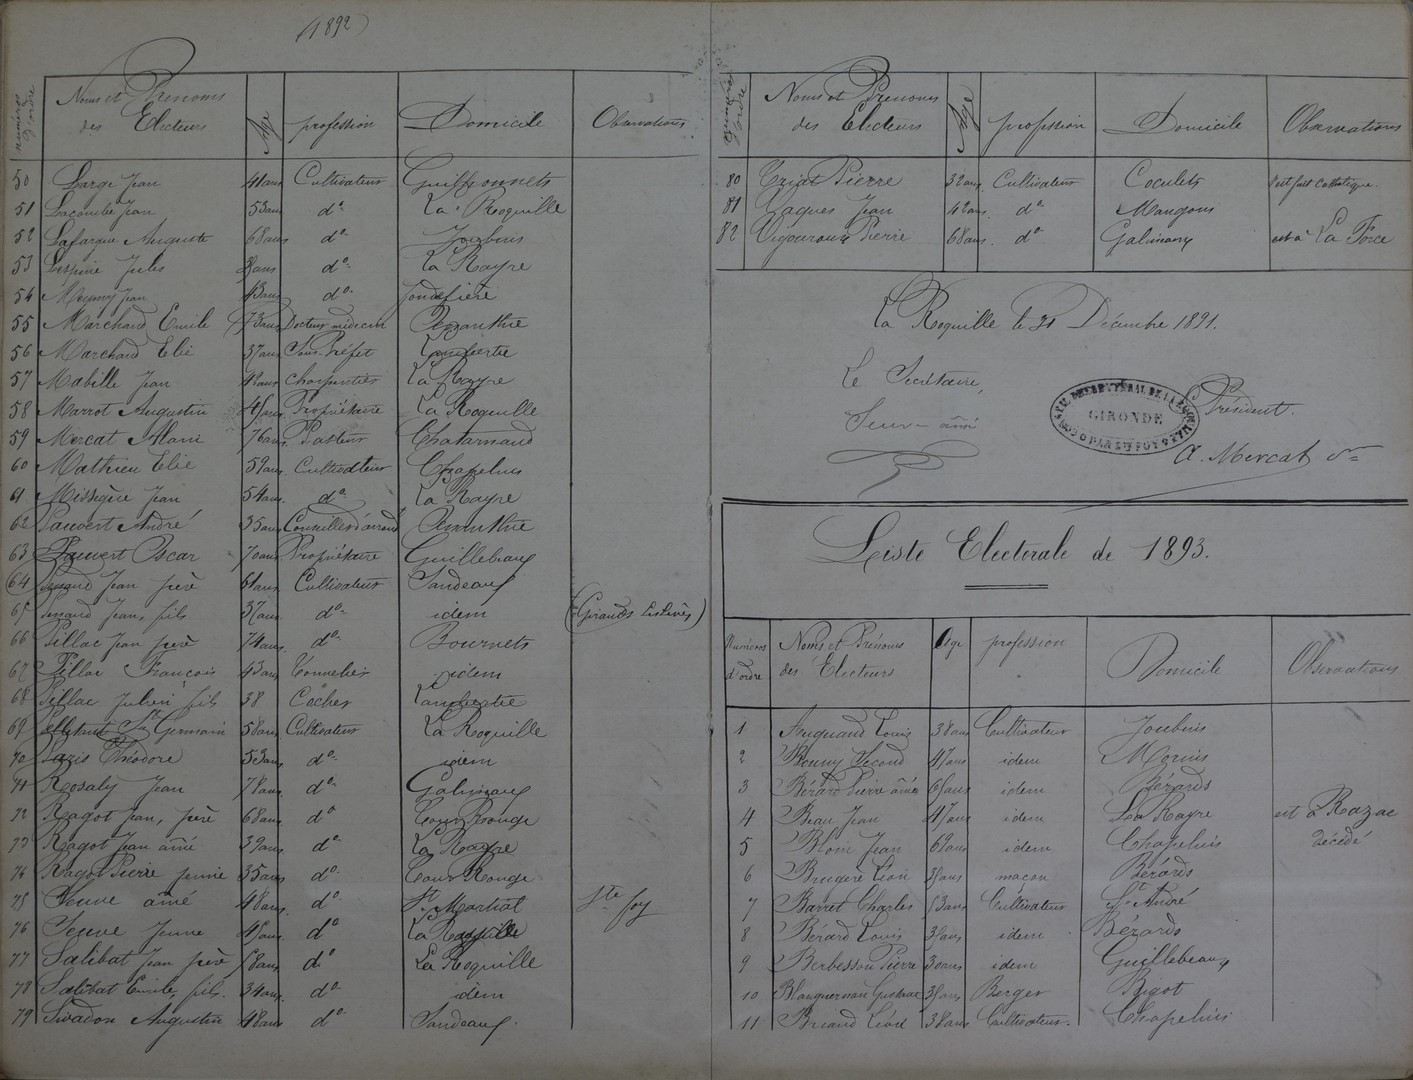 (1892)
numéros d'ordre Noms et Prénoms des Electeurs Age profession Domicile Observations
50 Large Jean 41 ans Cultivateur Guiffonnets
51 Lacombe Jean 53 ans do La Roquille
52 Lafargue Auguste 68 ans do Joubuis
53 Lespine Jules ans do La Rayre
54 Meymy Jean 43 ans do fondefière
55 Marchand Emile 73 ans Docteur médecin Amanthie
56 Marchand Elie 37 ans Sous-Préfet Lambertie
57 Mabille Jean ans charpentier La Rayre
58 Marrot Augustin 45 ans Propriétaire La Roquille
59 Mercat Alani 76 ans Pasteur Chatarnaud
60 Mathieu Elie 59 ans Cultivateur Chapelins
61 Missègue Jean 54 ans do La Rayre
62 Pauvert André 35 ans Conseiller d'arrondt Amanthie
63 Pauvert Oscar 70 ans Propriétaire Guillebeaux
64 Jean père 61 ans Cultivateur Sandeaux
65 Jean, fils 37 ans do idem (Grands Listivès)
66 Pillac Jean père 74 ans do Bournets
67 Pillac François 43 ans Tonnelier idem
68 Pillac Julien fils 38 Cocher Lambertie
69 St Germain 58 ans Cultivateur La Roquille
70 Théodore 53 ans do idem
71 Rosaly Jean 78 ans do Galineaux
72 Ragot Jean, père 68 ans do Tour Rouge
73 Ragot Jean aîné 39 ans do La Rayre
74 Ragot Pierre jeune 35 ans do Tour Rouge
75 Seuve aîné 48 ans do St Martial Ste foy
76 Seuve Jeune 45 ans do La Roquille
77 Salibat Jean père 58 ans do La Roquille
78 Salibat Emile, fils 34 ans do idem
79 Sivadon Augustin 48 ans do Sandeaux
numéros d'ordre Noms et Prénoms des Electeurs Age profession Domicile Observations
80 Triat Pierre 32 ans Cultivateur Coculets s'est fait catholique.
81 Vaques Jean 42 ans do Maugous
82 Vigouroux Pierre 68 ans do Galineaux est à La Force
La Roquille le 31 Décembre 1891.
Le Secrétaire,
Seuve aîné
GIRONDE
Le Président.
A. Mercat
Liste Electorale de 1893.
Numéros d'ordre Noms et Prénoms des Electeurs Age profession Domicile Observations
1 Auguand Louis 38 ans Cultivateur Joubuis
2 Second 47 ans idem Mornis
3 Bérard Pierre aîné 65 ans idem Bérards
4 Beau Jean 47 ans idem La Rayre est à Razac
5 Blom Jean 62 ans idem Chapelins décédé
6 Brugère Léon ans maçon Bérards
7 Barret Charles 53 ans Cultivateur St André
8 Bérard Louis ans idem Bérards
9 Berbesson Pierre 30 ans idem Guillebeaux
10 Blanquernau Gustave ans Berger Bigot
11 Briand Léon 38 ans Cultivateur. Chapelins